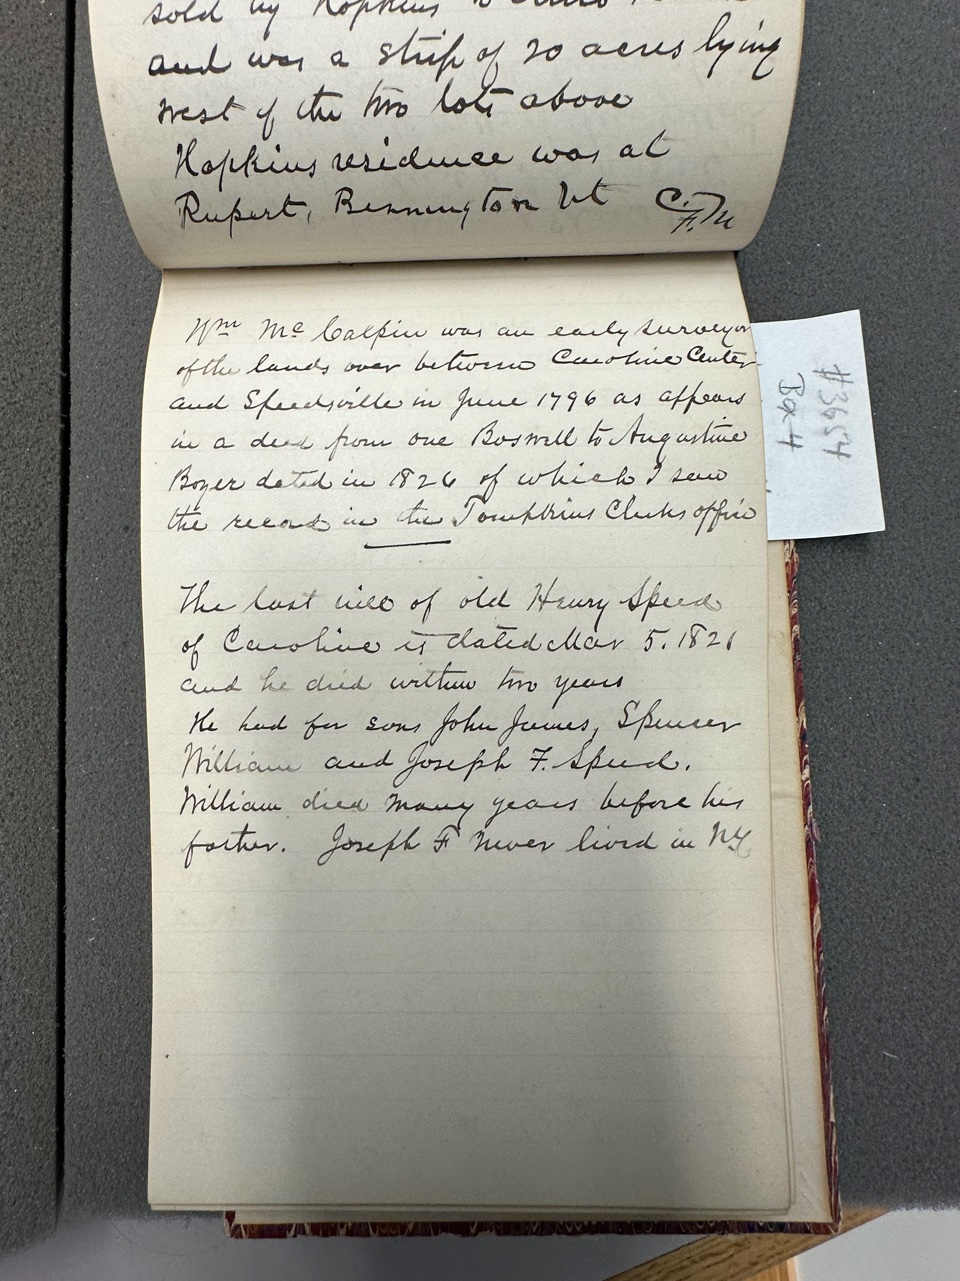 sold by Hopkins to
and was a strip of 20 acres lying
west of the two lots above
Hopkins residence was at
Rupert, Bennington Vt C.F.M
Wm Mc Calpin was an early surveyor
of the lands over between Caroline Center
and Speedsville in June 1796 as appears
in a deed from one Boswell to Augustine
Boyer dated in 1826 of which I saw
the record in the Tompkins Clerks office
The last will of old Henry Speed
of Caroline is dated Mar 5. 1821
and he died within two years
He had for sons John James, Spencer
William and Joseph F. Speed.
William died many years before his
father. Joseph F never lived in N.Y.
#3654
Box 4